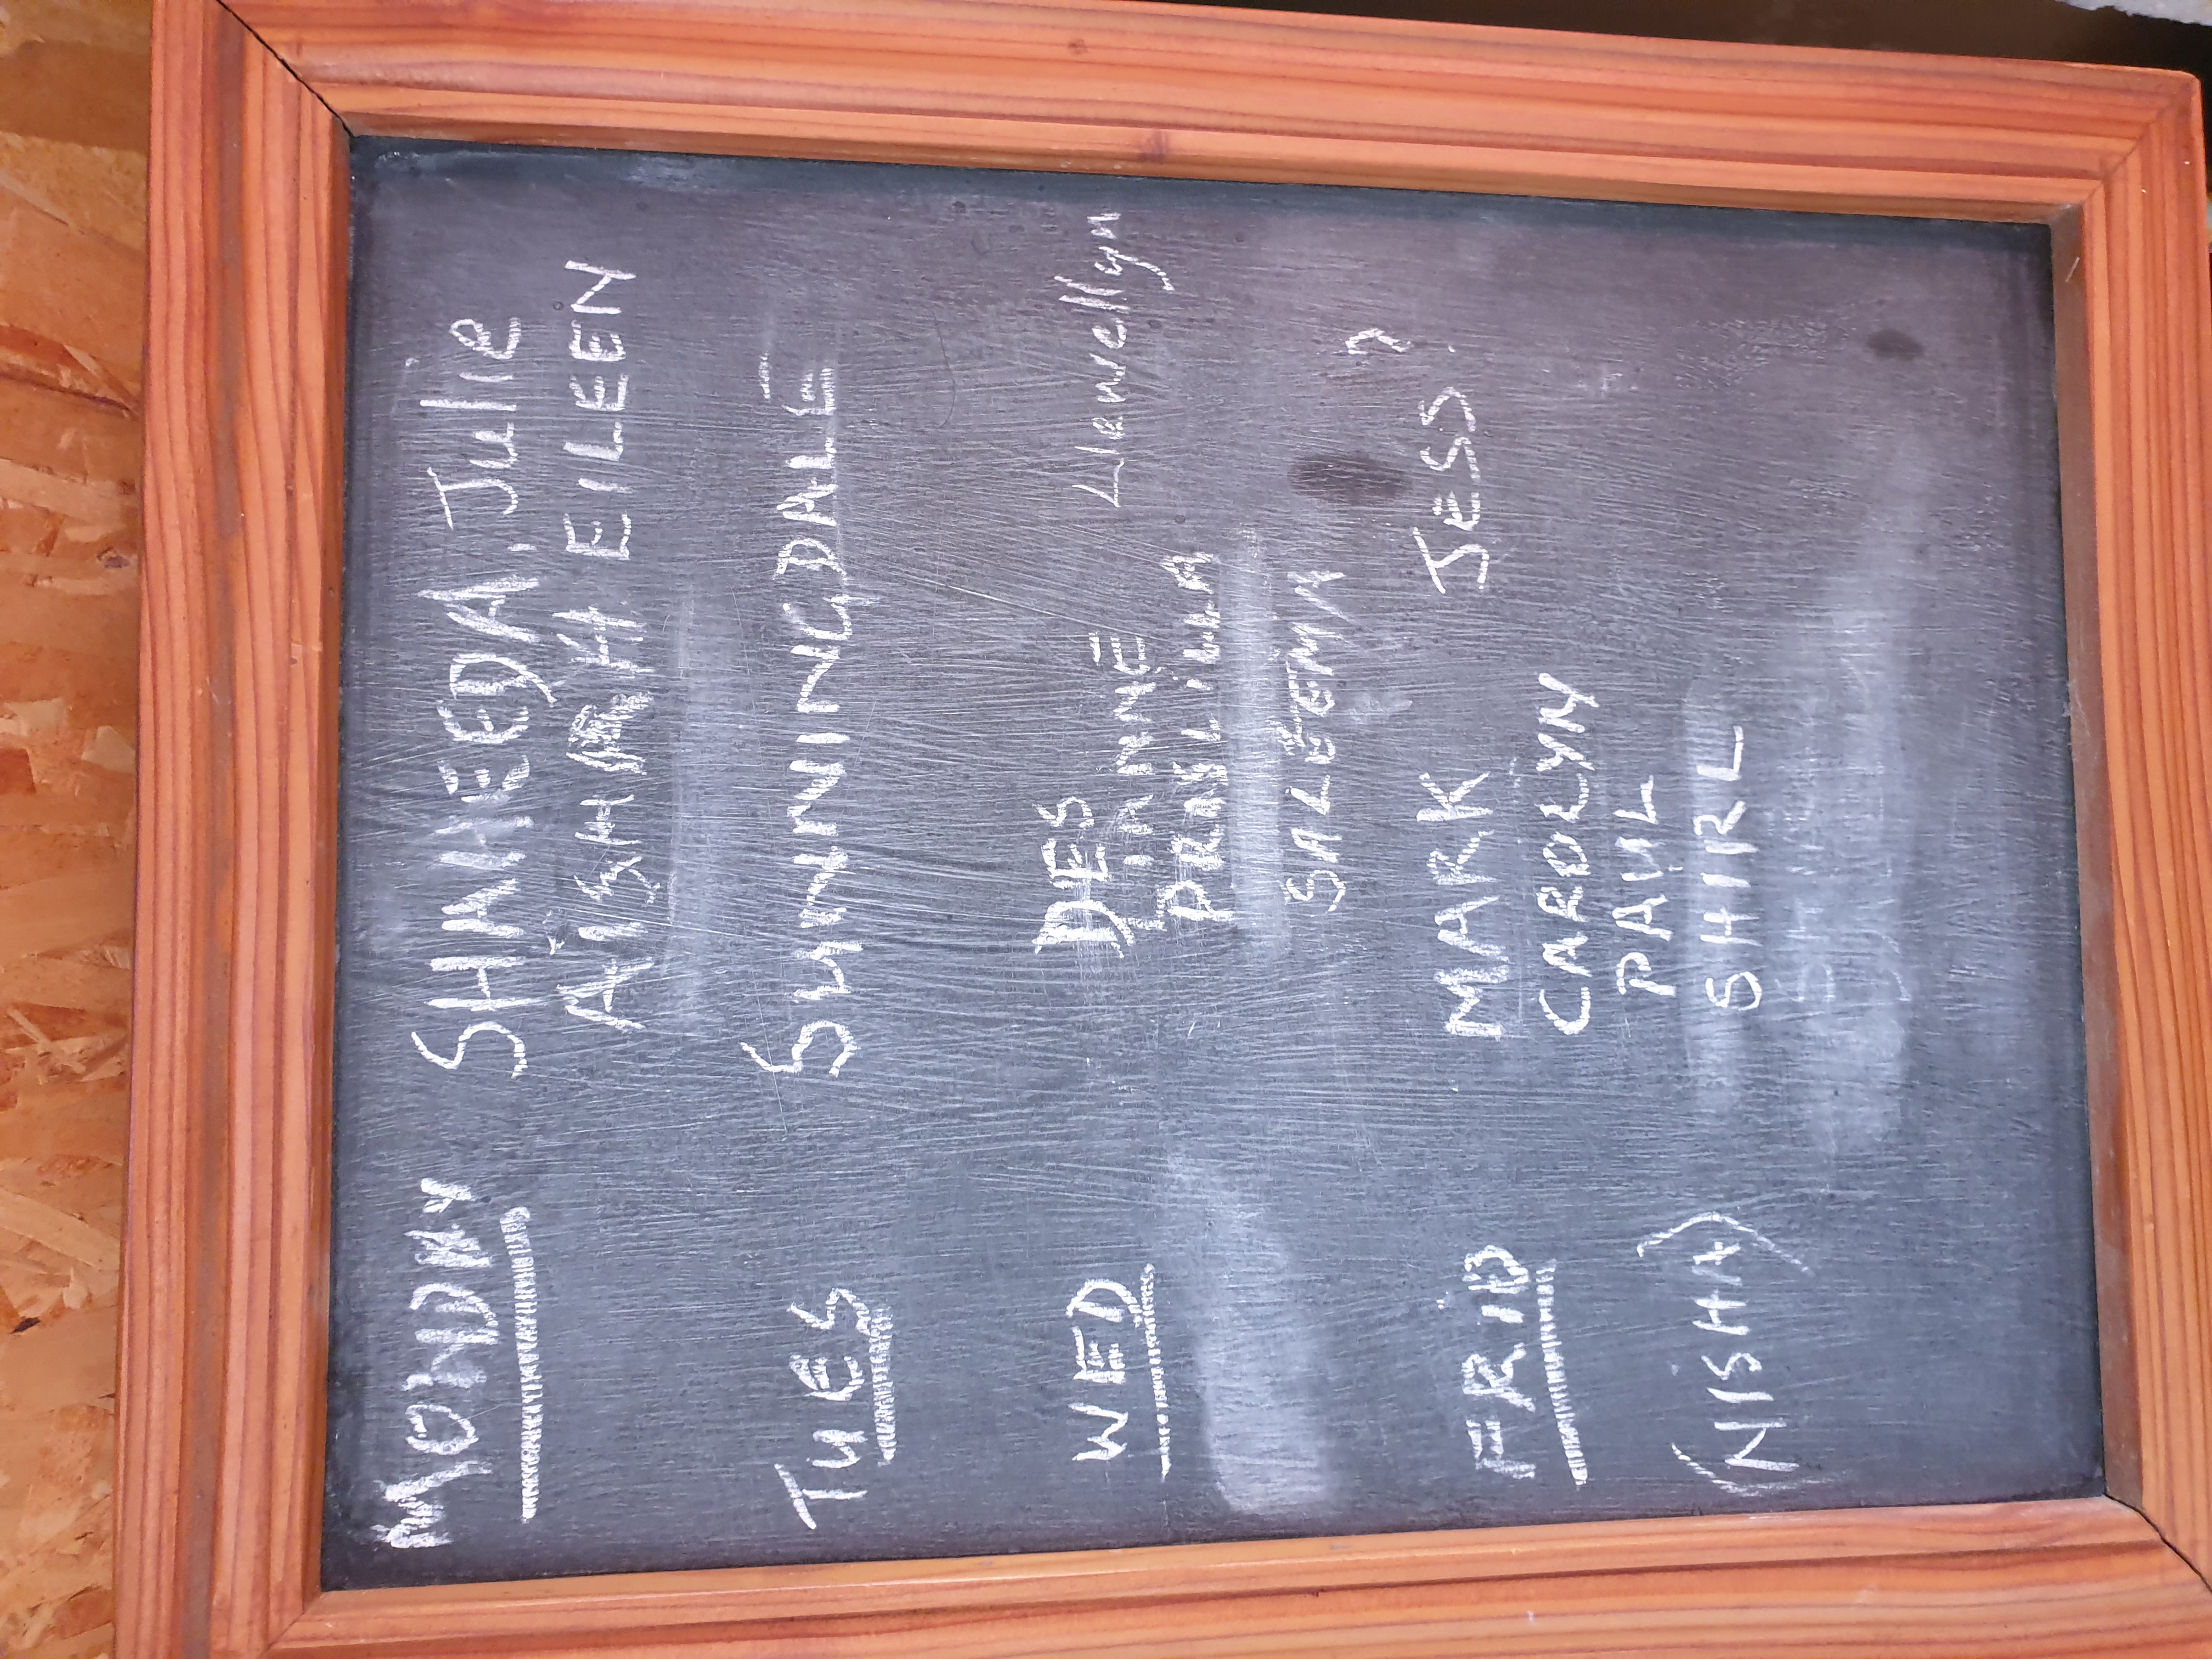 MONDAY SHAHEEDA, Julie
AISHAH EILEEN
TUES SUNNINGDALE
WED DES Llewellyn
LIANNE
PRISLILLA
SALEEMA
FRID MARK JESS?
CAROLYN
PAUL
(NISHA) SHIRL